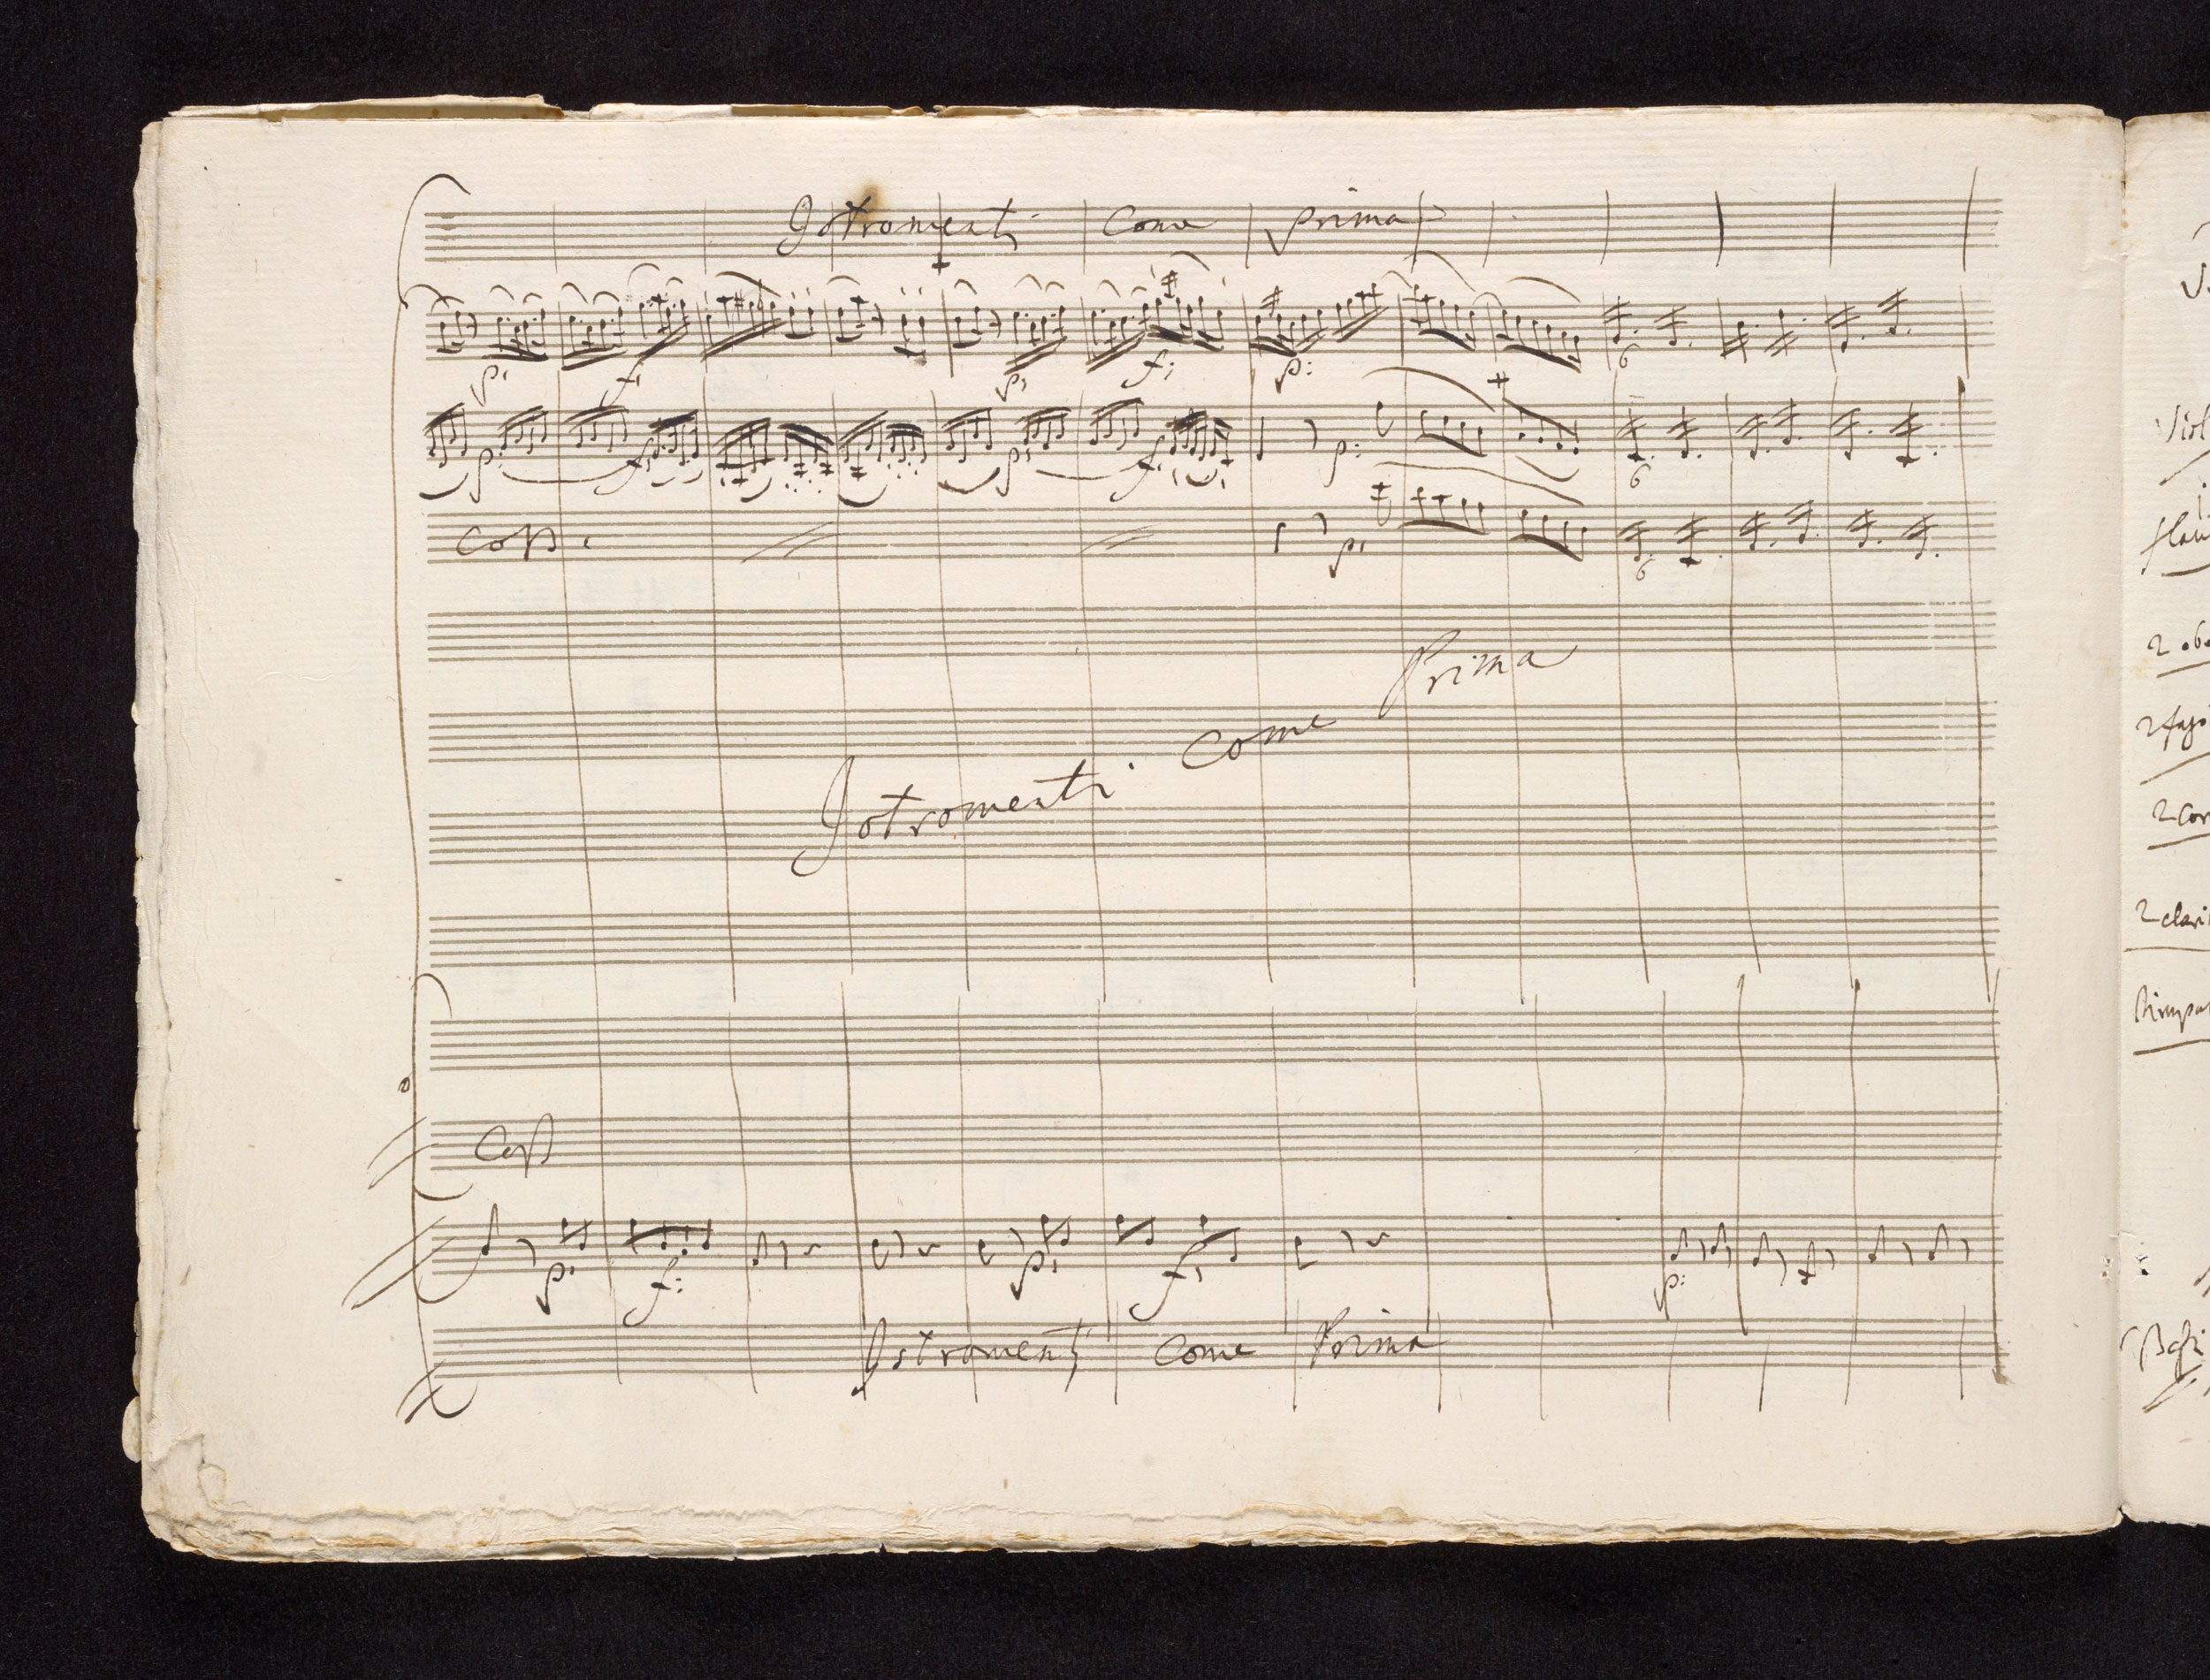 Istromenti come prima
p: f: p: f: p:
6
p: f: p: f: p:
6
Col B.
p:
6
Istromenti come Prima
Col B
p: f: p: f: p:
Istromenti come Prima
Viol
flau
2 obo
2 fago
2 Cor
2 clari
timpa
Bassi